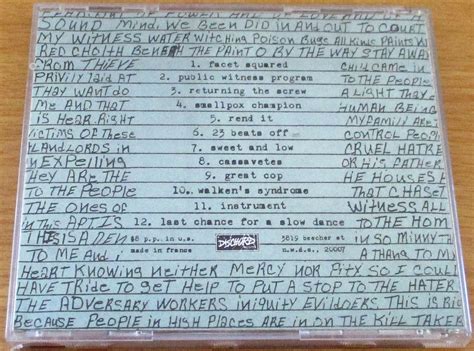 OF POWER AND OF LOVE AND OF A
SOUND MIND, WE BEEN DID IN AND OUT TO COURT
MY WITNESS WATER WITCHING POISON BUGS ALL KINDS PAINTS
RED THE PAINT O BY THE WAY STAY AWAY
FROM THIEVE 1. facet squared CHILD CAME IN
PRIVILY LAID AT 2. public witness program TO THE PEOPLE
THAY WANT DO 3. returning the screw A LIGHT THAY
ME AND THAT 4. smallpox champion HUMAN BEING
IS HEAR. RIGHT 5. rend it MY FAMILL ARE
VICTIMS OF THESE 6. 23 beats off CONTROL PEOPLE
LANDLORDS IN 7. sweet and low CRUEL HATRE
IN EXPELLING 8. cassavetes OR HIS FATHER
THEY ARE THE 9. great cop HE HOUSES
TO THE PEOPLE 10. walken's syndrome THAT CHASET
THE ONES OF 11. instrument WITNESS ALL
IN THIS APT. IS 12. last chance for a slow dance TO THE HOM
THIS IS A DEN $8 p.p. in u.s. DISCHORD 3819 beecher st IN SO MINNY
TO ME AND I made in france n.w.d.c. 20007 A THANG TO MY
HEART KNOWING NEITHER MERCY NOR PITY SO I COULD
HAVE TRIDE TO GET HELP TO PUT A STOP TO THE HATER
THE ADVERSARY WORKERS INIQUITY EVILDOERS THIS IS BIG
BECAUSE PEOPLE IN HIGH PLACES ARE IN ON THE KILL TAKER